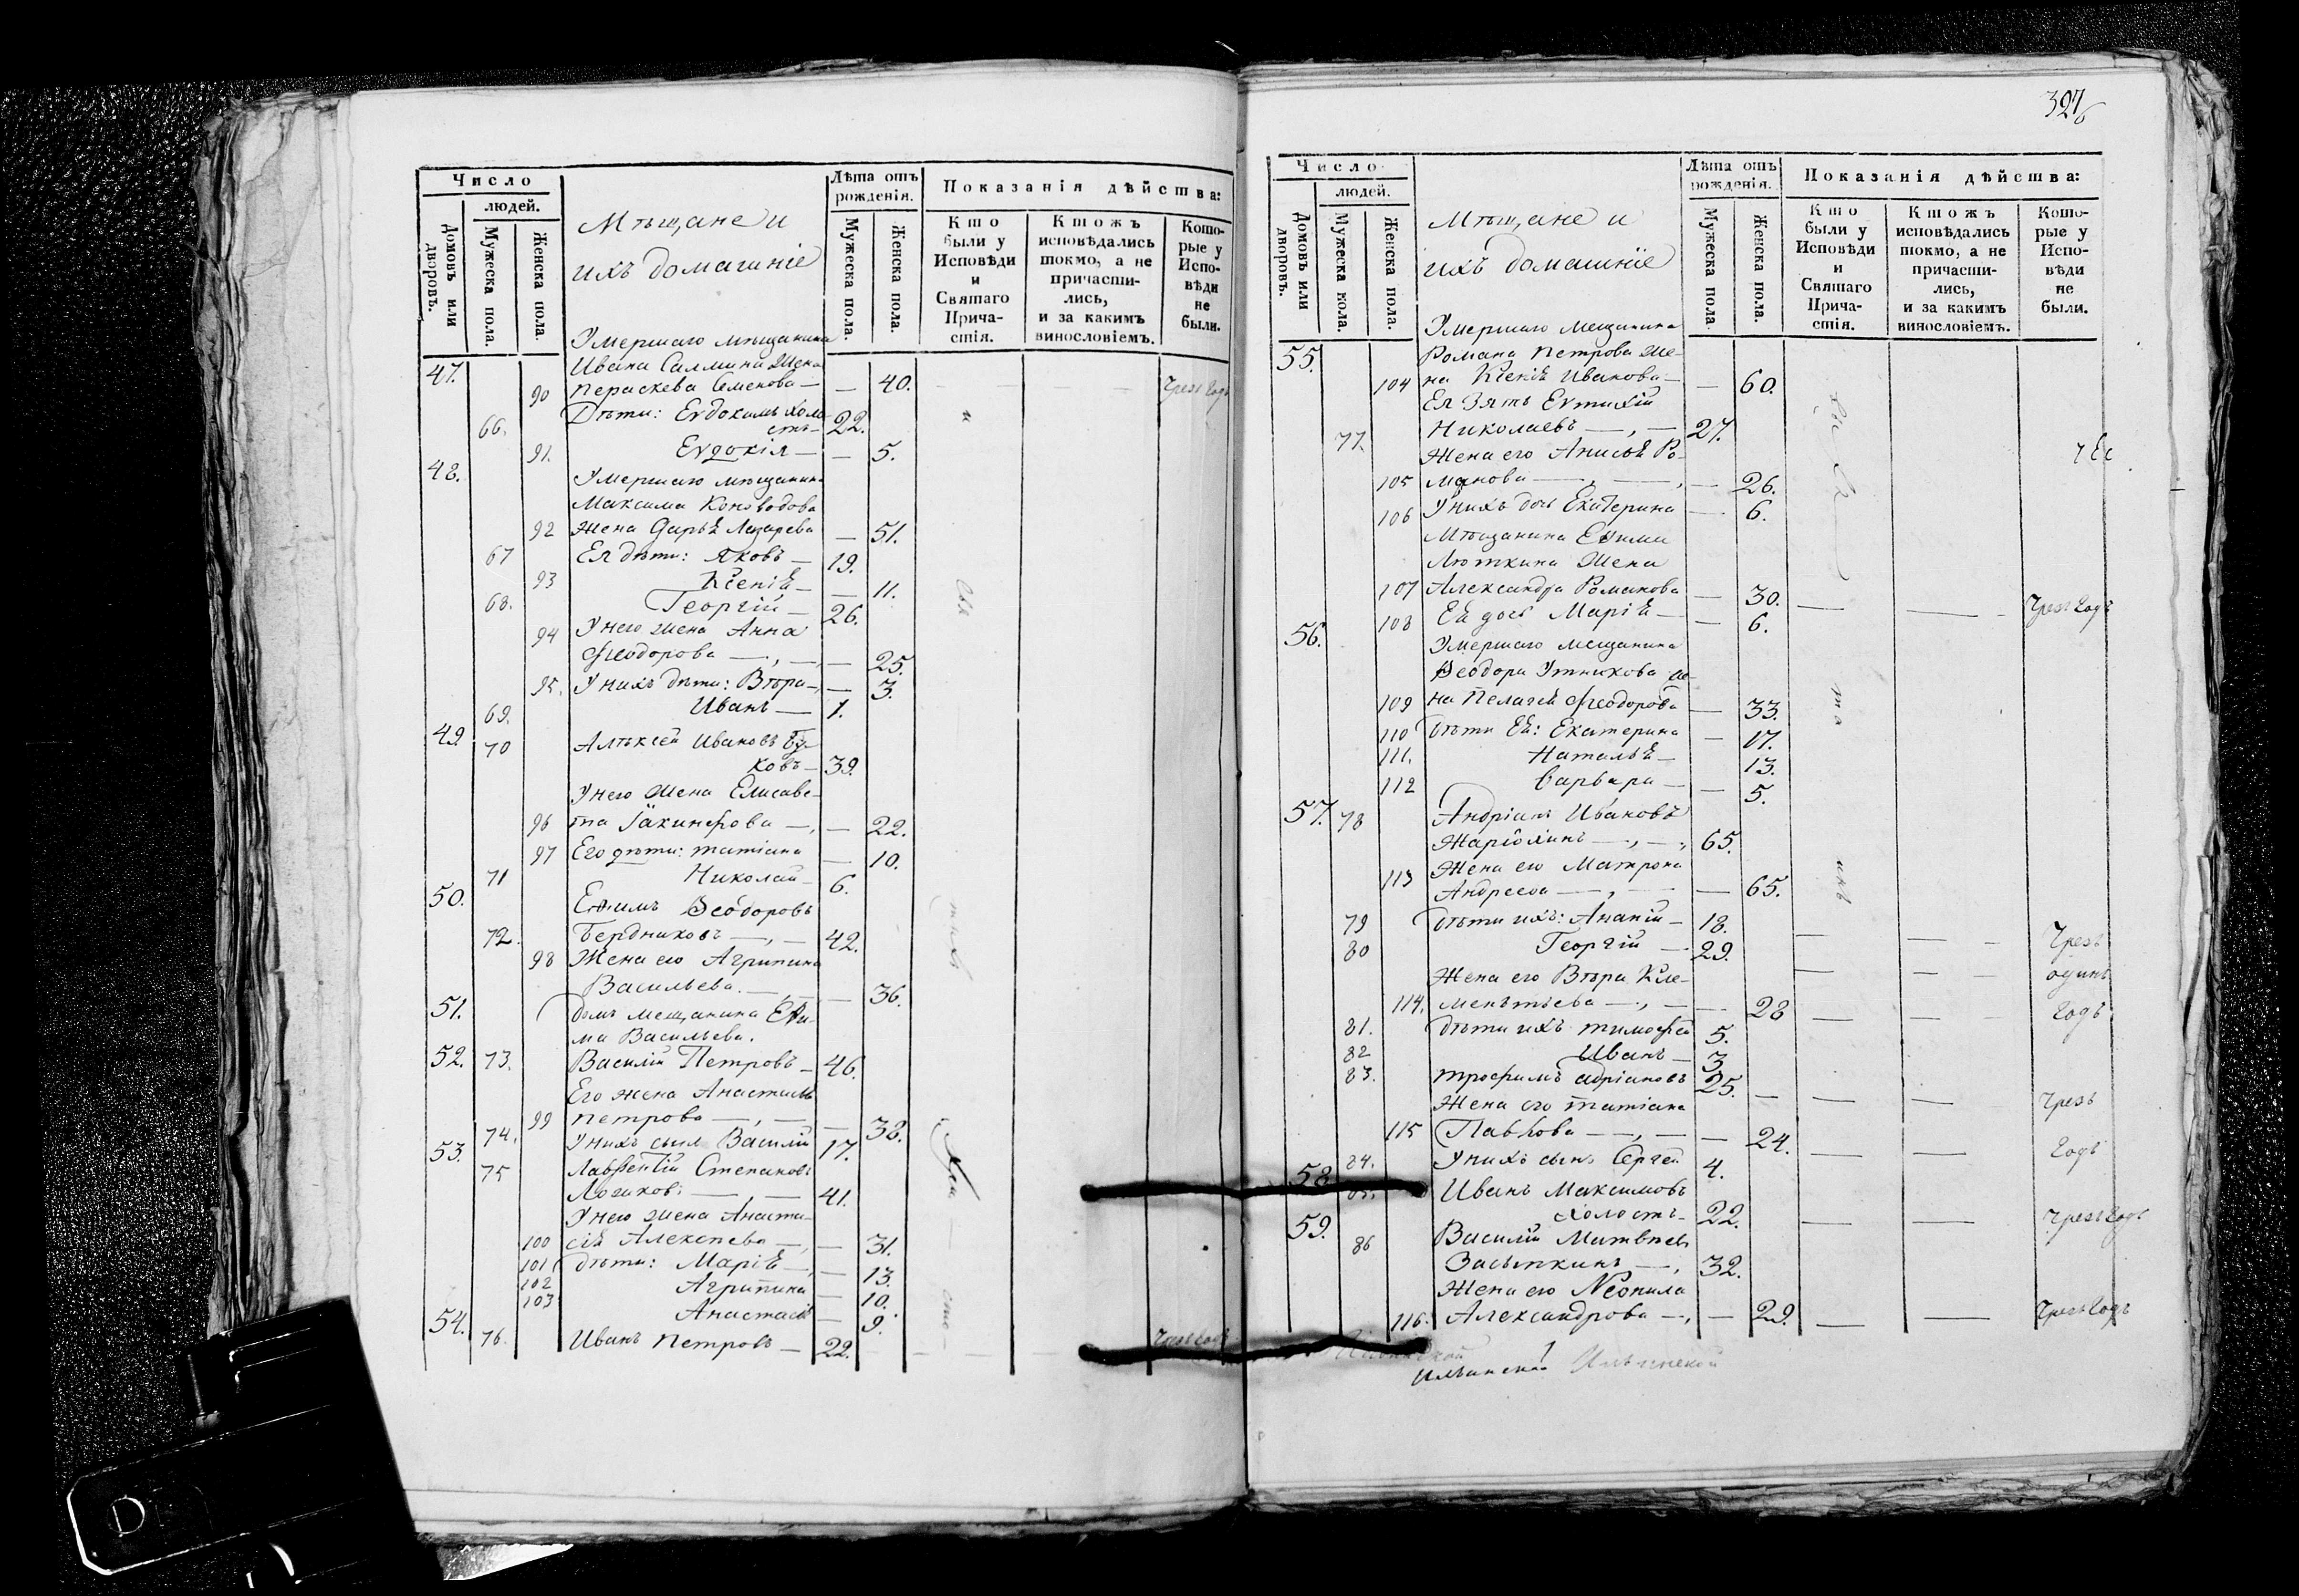 Число
людей.
Домовъ или дворовъ.
Мужеска пола.
Женска пола.
Мѣщане и
ихъ домашніе
Лѣта отъ
рожденія.
Мужеска пола.
Женска пола.
Показанія дѣйства:
Кто
были у
Исповѣди
и
Святаго
Прича-
стія.
Ктожъ
исповѣдались
токмо, а не
причасти-
лись,
и за какимъ
винословіемъ.
Кото-
рые у
Испо-
вѣди
не
были.
Умершаго мѣщанина
47. Ивана Саллмина Жена
90 Параскева Семенова — — 40. Чрезъ Годъ
66. Дѣти: Евдокимъ холо-
стъ — 22.
91. Евдокія — — 5.
48. Умершаго мѣщанина
Максима Коноводова
92 Жена Дарья Лазарева — 51.
67 Ея дѣти: Яковъ — 19.
93 Ксенія — — 11.
68. Георгій — 26.
94 У него жена Анна
Ѳеодорова — , — — 25.
95. У нихъ дѣти: Вѣра — — 3.
69. Иванъ — 1.
49. 70 Алѣксей Ивановъ Бу-
ковъ — 39.
У него жена Елисаве-
96 та Іакинфова — , — 22.
97 Его дѣти: татіана — 10.
71 Николай — 6.
50. Ефимъ Ѳеодоровъ
72. Бердниковъ — , — 42.
98 Жена его Агрипина
Васильева. — — 36.
51. Домъ мещанина Ефи-
ма Васильева.
52. 73. Василій Петровъ — 46.
Его жена Анастасія
99 петрова — , — — 38.
74. У нихъ сынъ Василій 17.
53. 75 Лаврентій Степановъ
— , — 41.
У него жена Анаста-
100 сія Алексѣева — , — 31.
101 Дѣти: Марія — , — 13.
102 Агрипина — 10.
103 Анастасія — 9.
54. 76. Иванъ Петровъ — 22. Чрезъ Годъ
327
Число
людей.
Домовъ или дворовъ.
Мужеска пола.
Женска пола.
Мѣщане и
ихъ домашніе
Лѣта отъ
рожденія.
Мужеска пола.
Женска пола.
Показанія дѣйства:
Кто
были у
Исповѣди
и
Святаго
Прича-
стія.
Ктожъ
исповѣдались
токмо, а не
причасти-
лись,
и за какимъ
винословіемъ.
Кото-
рые у
Испо-
вѣди
не
были.
Умершаго мещанина
55. Романа петрова же-
104 на Ксенія Иванова — — 60.
Ея Зять Евтихій
77. Николаевъ — , — 27.
Жена его Анисья Ро-
105 манова — , — , — 26.
106 У нихъ дочь Екатерина — 6.
Мѣщанина Ефима
Люткина Жена
107 Александра Романова — 30.
108 Ея дочь Марія — — 6. — — Чрезъ Годъ
56. Умершаго мещанина
Ѳеодора Утникова же-
109 на Пелагея Ѳеодорова — 33.
110 Дѣти Ея: Екатерина — 17.
111. Наталья — 13.
112 Варвара — — 5.
57. 78 Андріанъ Ивановъ
— , — , 65.
Жена его Матрона
113 Андреева — , — — 65.
79 Дѣти ихъ: Ананій — 18.
80 Георгій — 29. — — Чрезъ
Жена его Вѣра Кле- — — одинъ
114. менътьева — , — — 28 — — Годъ
81. Дѣти ихъ тимофей 5.
82 Иванъ — 3
83. трофимъ адріановъ 25. — — — Чрезъ
Жена его татіана
115 Павлова — , — — 24. — — Годъ
84. У нихъ сынъ Сергей 4.
58 85. Иванъ Максимовъ
холостъ — 22. — — Чрезъ Годъ
59. 86 Василій Матвѣевъ
Засыпкинъ — , 32.
Жена его Неонила
116. Александрова — , — 29. — — Чрезъ Годъ
Ильинской Ильинской